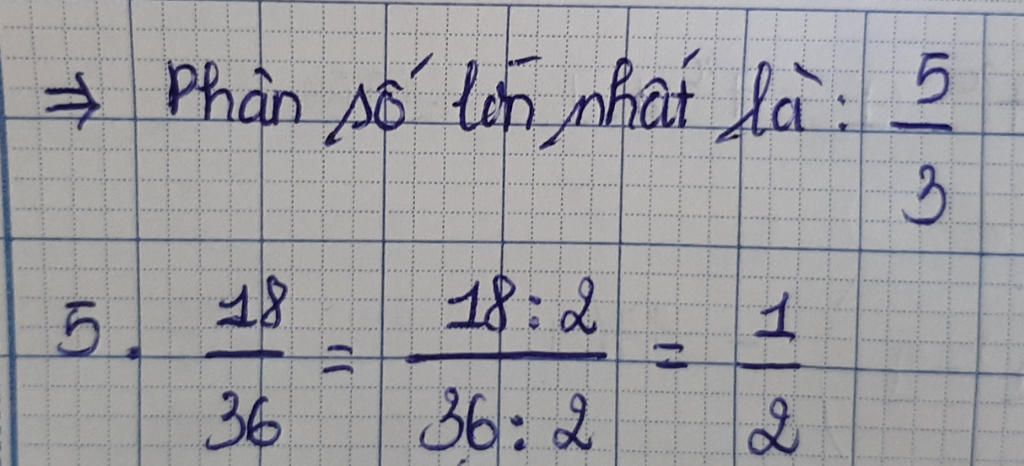 ⇒ Phân số lớn nhất là: 5/3
5. 18/36 = 18:2/36:2 = 1/2